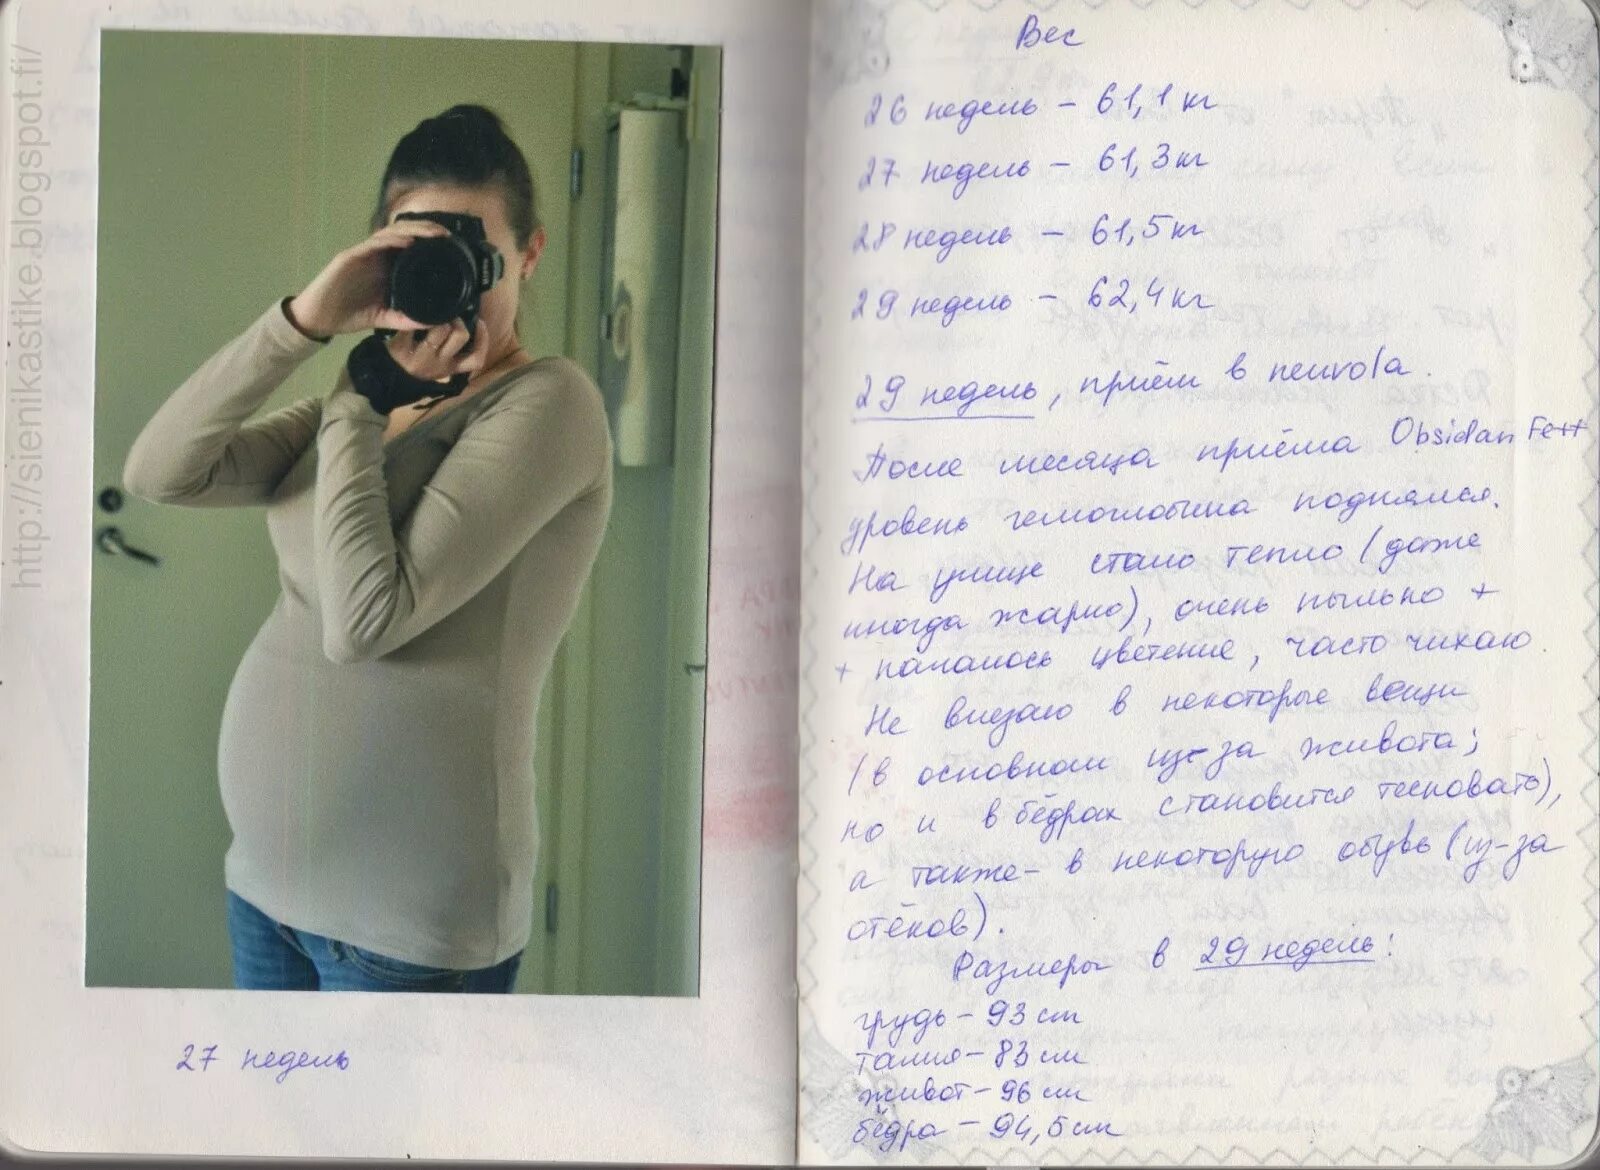 http://sienikastike.blogspot.fi/
27 недель
Вес
26 недель – 61,1 кг
27 недель – 61,3 кг
28 недель – 61,5 кг
29 недель – 62,4 кг
29 недель, приём в neuvola.
После месяца приёма Obsidan Fe++
уровень гемоглобина поднялся.
На улице стало тепло (даже
иногда жарко), очень пыльно +
+ началось цветение, часто чихаю.
Не влезаю в некоторые вещи
(в основном из-за живота;
но и в бёдрах становится тесновато),
а также – в некоторую обувь (из-за
отёков).
Размеры в 29 недель:
грудь – 93 см
талия – 83 см
живот – 96 см
бёдра – 94,5 см